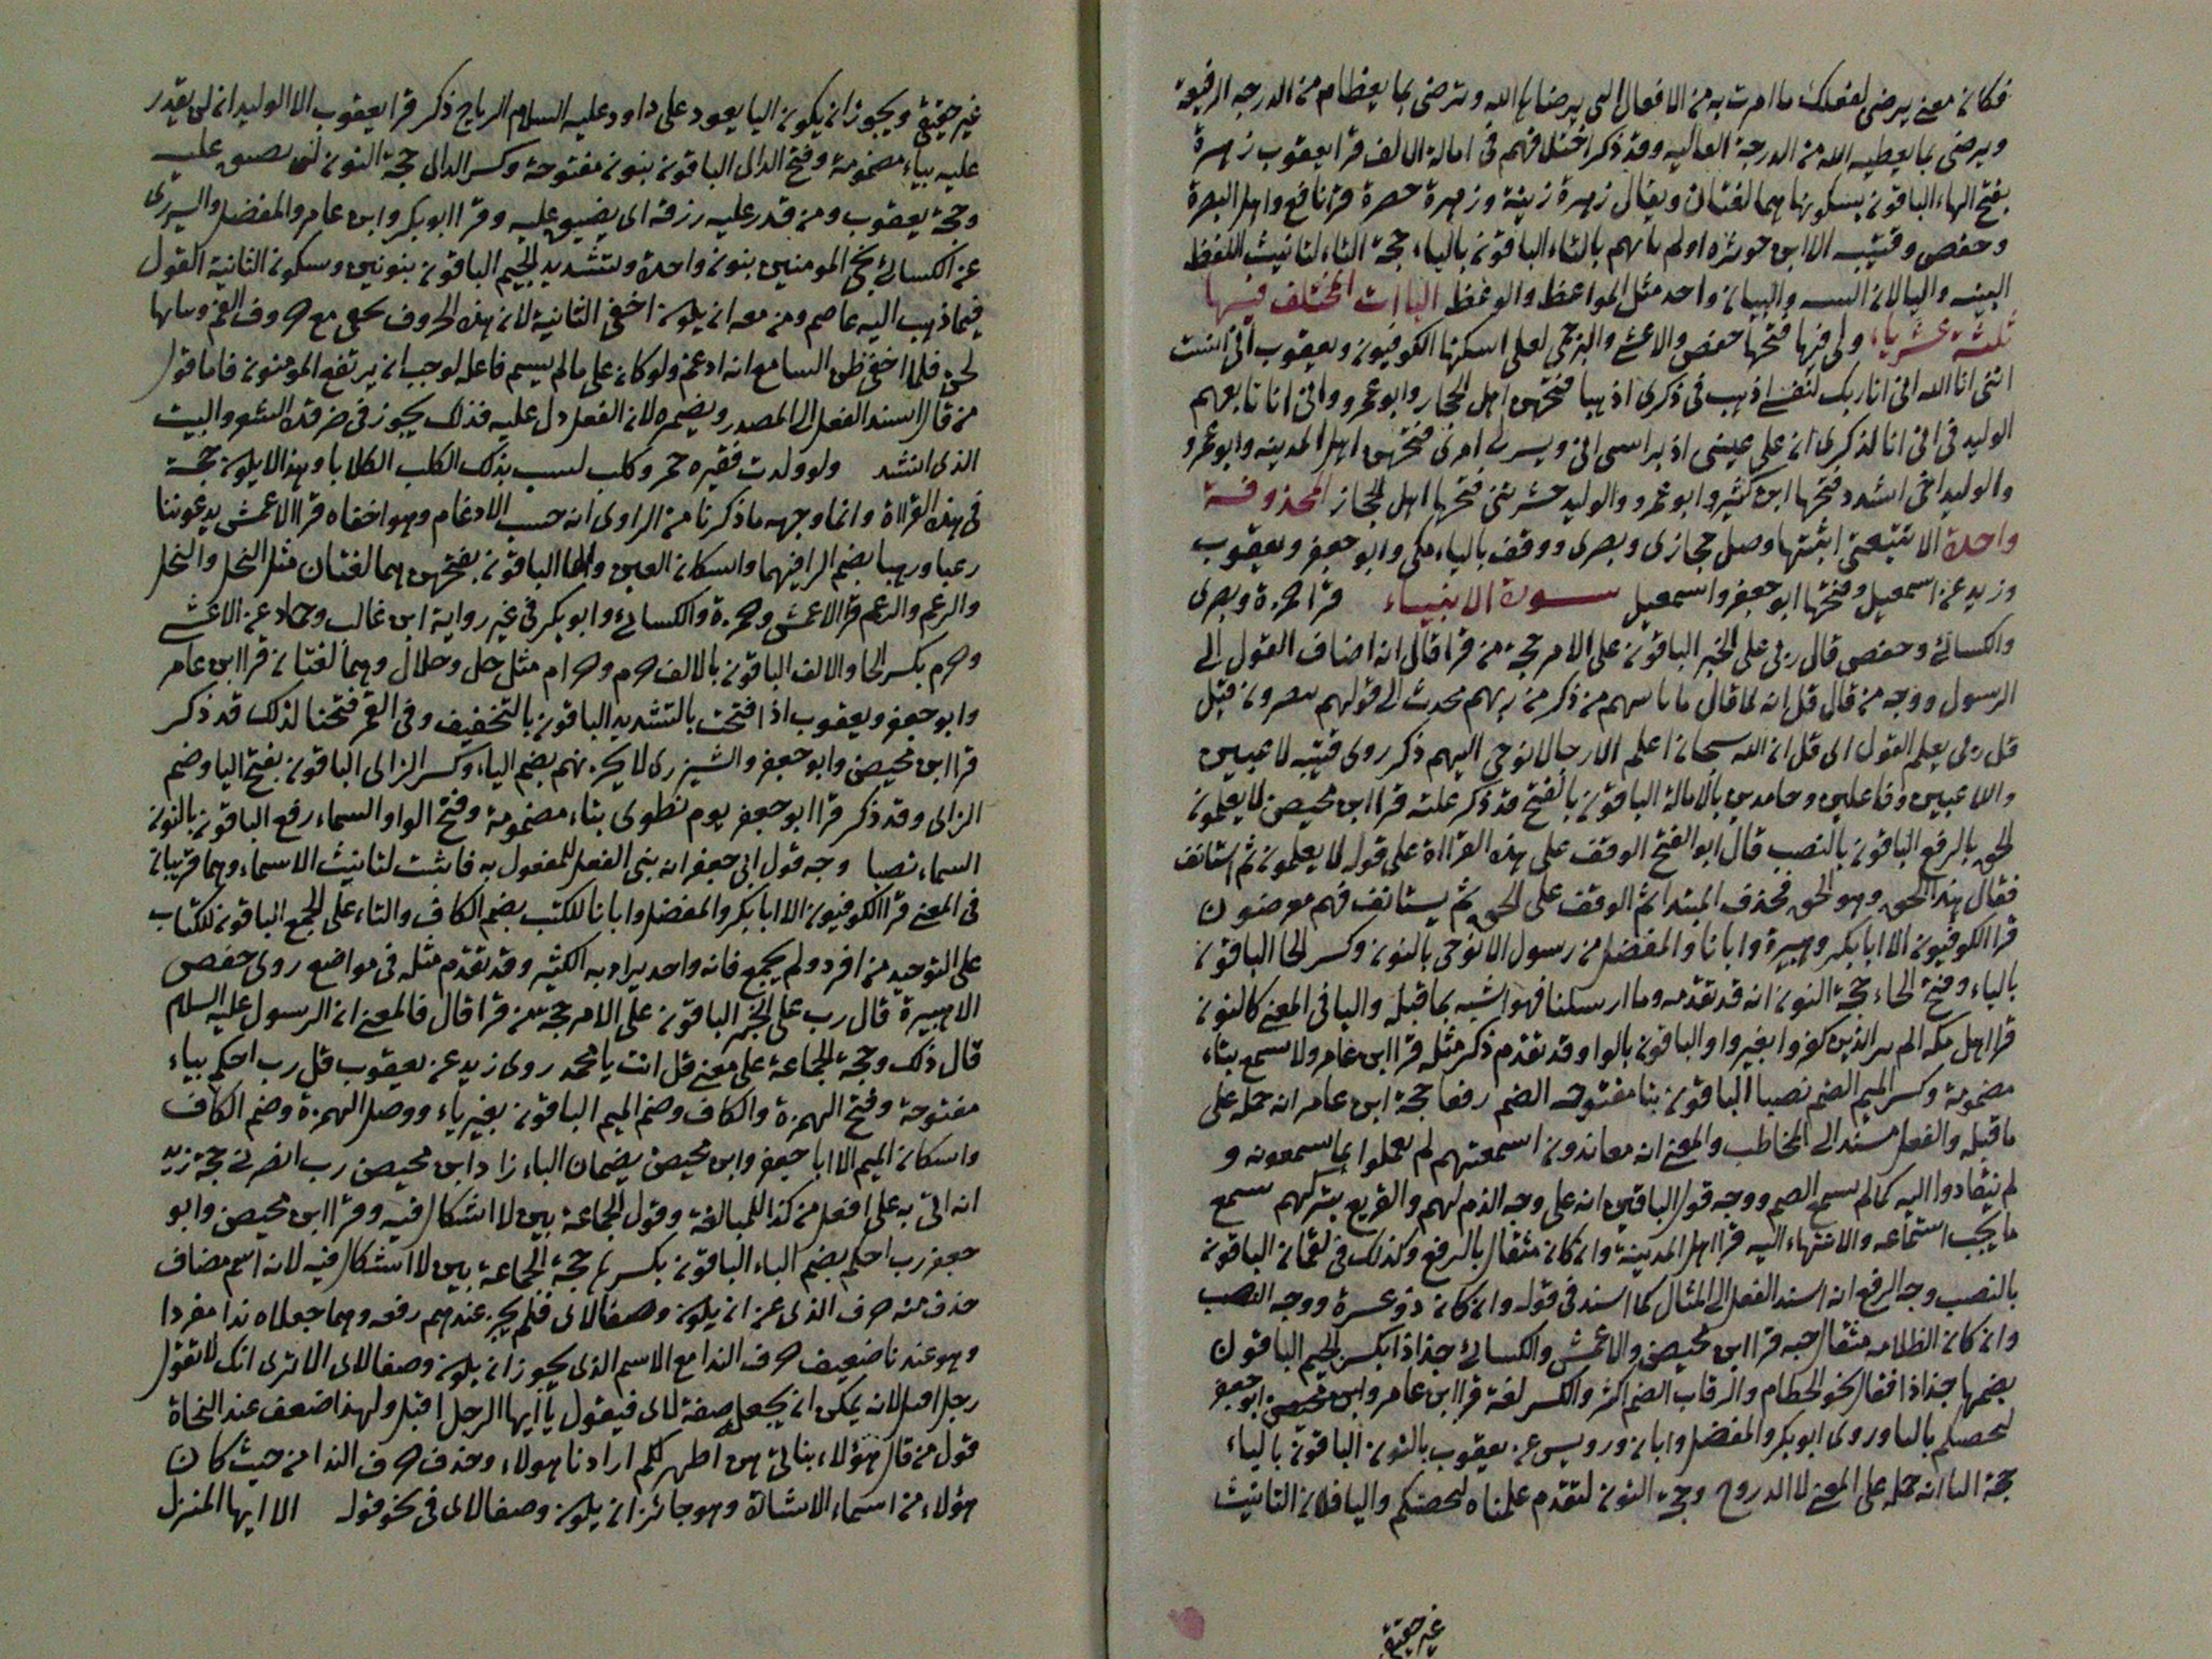 فكان معنى يرضى لفعلك ما امرت به من الافعال التى يرضاها الله وترضى بما يعطاه من الدرجه الرفيعة
ويرضى بما يعطيه الله من الدرجة العاليه وقد ذكر اختلافهم فى امالة الالف قرا يعقوب زهرة
بفتح الهاء الباقون بسكونها هما لغتان ويقال زهرة زينة وزهرة حصرة قرا نافع واهل البصرة
وحفص وقتيبه الا ابن حوثره اولم تاتهم بالتاء الباقون بالياء حجة التاء لتانيث اللفظ
البينه واليا لان البينه والبيان واحد مثل المواعظ والوعظ الياات المختلف فيها
ثلثة عشر ياء ولى فيها فتحها حفص والاعشى والبرجمى لعلى اسكنها الكوفيون ويعقوب انى انست
اننى انا الله انى انا ربك لنفسى اذهب فى ذكرى اذهبا فتحهن اهل الحجاز وابو عمرو وانى انا تابعهم
الوليد فى انى انا لذكرى ان على عينى اذ براسى انى ويسر لى امرى فتحهن اهل المدينه وابو عمرو
والوليد اخى اشدد فتحها ابن كثير وابو عمرو والوليد حشرتنى فتحها اهل الحجاز المحذوفة
واحدة الا تتبعنى اثبتها وصل حجازى وبصرى ووقف بالياء مكى وابو جعفر ويعقوب
وزيد عن اسمعيل وفتحها ابو جعفر واسمعيل سورة الانبياء قرا حمزة وبصرى
والكسائى وحفص قال ربى على الخبر الباقون على الامر حجة من قرا قال انه اضاف القول الى
الرسول ووجه من قال قل انه لما قال ما ياتيهم من ذكر من ربهم محدث الى قولهم تبصرون قيل
قل ربى يعلم القول اى قل ان الله سبحانه اعلم الا رجالا نوحى اليهم ذكر روى قتيبه لاعبين
واللاعبين وفاعلين وحامدين بالامالة الباقون بالفتح قد ذكر علته قرا ابن محيصن لا يعلمون
الحق بالرفع الباقون بالنصب قال ابو الفتح الوقف على هذه القرااة على قوله لا يعلمون ثم استانف
فقال هذا الحق وهو الحق فحذف المبتدا ثم الوقف على الحق ثم يستانف فهم معرضون
قرا الكوفيون الا ابا بكر وهبيرة وابانا والمفضل من رسول الا نوحى بالنون وكسر الحا الباقون
بالياء وفتح الحاء حجة النون انه قد تقدمه وما ارسلنا فهو اشبه بما قبله واليا فى المعنى كالنون
قرا اهل مكه الم ير الذين كفروا بغير واو الباقون بالواو قد تقدم ذكر مثله قرا ابن عامر ولا تسمع بتاء
مضمومة وكسر الميم الصم نصبا الباقون بيا مفتوحه الصم رفعا حجة ابن عامر انه حمله على
ما قبله والفعل مسند الى المخاطب والمعنى انه معاندون اسمعتهم لم يعملوا بما سمعونه و
لم ينقادوا اليه كما لم يسمع الصم ووجه قول الباقين انه على وجه الذم لهم والتقريع بتركهم سمع
ما يجب استماعه والانتهاء اليه قرا اهل المدينة وان كان مثقال بالرفع وكذلك فى لقمان الباقون
بالنصب وجه الرفع انه اسند الفعل الى المثقال كما اسند فى قوله وان كان ذو عسرة ووجه النصب
وان كان الظلامه مثقال حبه قرا ابن محيصن والاعمش والكسائى جذاذا بكسر الجيم الباقون
بضمها جذاذا فعال نحو الحطام والرقاب الضم اكثر والكسر لغة قرا ابن عامر وابن محيصن ابو جعفر
لتحصنكم بالتا وروى ابو بكر والمفضل وابان ورويس عن يعقوب بالنون الباقون بالياء
حجة التا انه حمله على المعنى لا الدروع وحجة النون لتقدم علمناه لنحصنكم واليا فلان التانيث
غير حقيقى
غير حقيقى ويجوز ان يكون اليا يعود على داود عليه السلام الرياح ذكر قرا يعقوب الا الوليد ان لن يقدر
عليه بياء مضمومة وفتح الدال الباقون بنون مفتوحة وكسر الدال حجة النون لن نضيق عليه
وحجة يعقوب ومن قدر عليه رزقه اى يضيق عليه وقرا ابو بكر وابن عامر والمفضل والشيزرى
عن الكسائى نجى المومنين بنون واحدة وبتشديد الجيم الباقون بنونين وسكون الثانية القول
فيما ذهب اليه عاصم ومن معه ان يكون اخفى الثانية لان هذه الحروف تخفى مع حروف الفم وبيانها
لحن فلما اخفى ظن السامع انه ادغم ولو كان على ما لم يسم فاعله لوجب ان يرتفع المومنون فاما قول
من قال اسند الفعل الى المصدر ويضمره لان الفعل دل عليه فذلك يجوز فى ضرورة الشعر والبيت
الذى انشد ولو ولدت فقيره جرو كلب لسب بذلك الكلب الكلابا وهذا لا يكون حجة
فى هذه القرااة وانما وجهه ما ذكرنا من الراوى انه حسب الادغام وهو اخفاه قرا الاعمش يدعوننا
رغبا ورهبا بضم الرا فيهما واسكان الغين والها الباقون بفتحهن هما لغتان مثل البخل والبخل
والرغم والرغم قرا الاعمش وحمزة والكسائى وابو بكر فى غير رواية ابن غالب وحماد عن الاعشى
وحرم بكسر الحا والالف الباقون بالالف حرم وحرام مثل حل وحلال وهما لغتان قرا ابن عامر
وابو جعفر ويعقوب اذا فتحت بالتشديد الباقون بالتخفيف وفى القمر فتحنا لذلك قد ذكر
قرا ابن محيصن وابو جعفر والشيزرى لا يحزنهم بضم الياء وكسر الزاى الباقون بفتح اليا وضم
الزاى وقد ذكر قرا ابو جعفر يوم تطوى بتاء مضمومة وفتح الواو السماء رفع الباقون بالنون
السماء نصبا وجه قول ابى جعفر انه بنى الفعل للمفعول به فانثت لتانيث الاسماء وهما قريبان
فى المعنى قرا الكوفيون الا ابا بكر والمفضل وابانا للكتب بضم الكاف والتاء على الجمع الباقون للكتاب
على التوحيد من افرد ولم يجمع فانه واحد يراد به الكثره وقد تقدم مثله فى مواضع روى حفص
الا هبيرة قال رب على الخبر الباقون على الامر حجة من قرا قال فالمعنى ان الرسول عليه السلم
قال ذلك وحجة الجماعة على معنى قل انت يا محمد روى زيد عن يعقوب قل رب احكم بياء
مفتوحة وفتح الهمزة والكاف وضم الميم الباقون بغير ياء ووصل الهمزة وضم الكاف
واسكان الميم الا ابا جعفر وابن محيصن يضمان الباء زاد ابن محيصن رب انصرنى حجة زيد
انه اتى به على افعل من كذا للمبالغة وقول الجماعة بين لا اشكال فيه وقرا ابن محيصن وابو
جعفر رب احكم بضم الباء الباقون بكسرها حجة الجماعة بين لا اشكال فيه لانه اسم مضاف
حذف منه حرف الذى عن ان يكون وصفا لاى فلم يجز عندهم رفعه وهما جعلاه ندا مفردا
وهو عندنا ضعيف حرف الندا مع الاسم الذى يجوز ان يكون وصفا لاى الا ترى انك لا تقول
رجل اقبل لانه يمكن ان يجعل صفة لاى فيقول يا ايها الرجل اقبل ولهذا ضعف عند النحاة
قول من قال هؤلاء بناتى هن اطهر لكم اراد نا هولاء وحذف حرف الندا من حيث كان
هؤلاء من اسماء الاشارة وهو جائز ان يكون وصفا لاى فى نحو قوله الا ايها المنزل